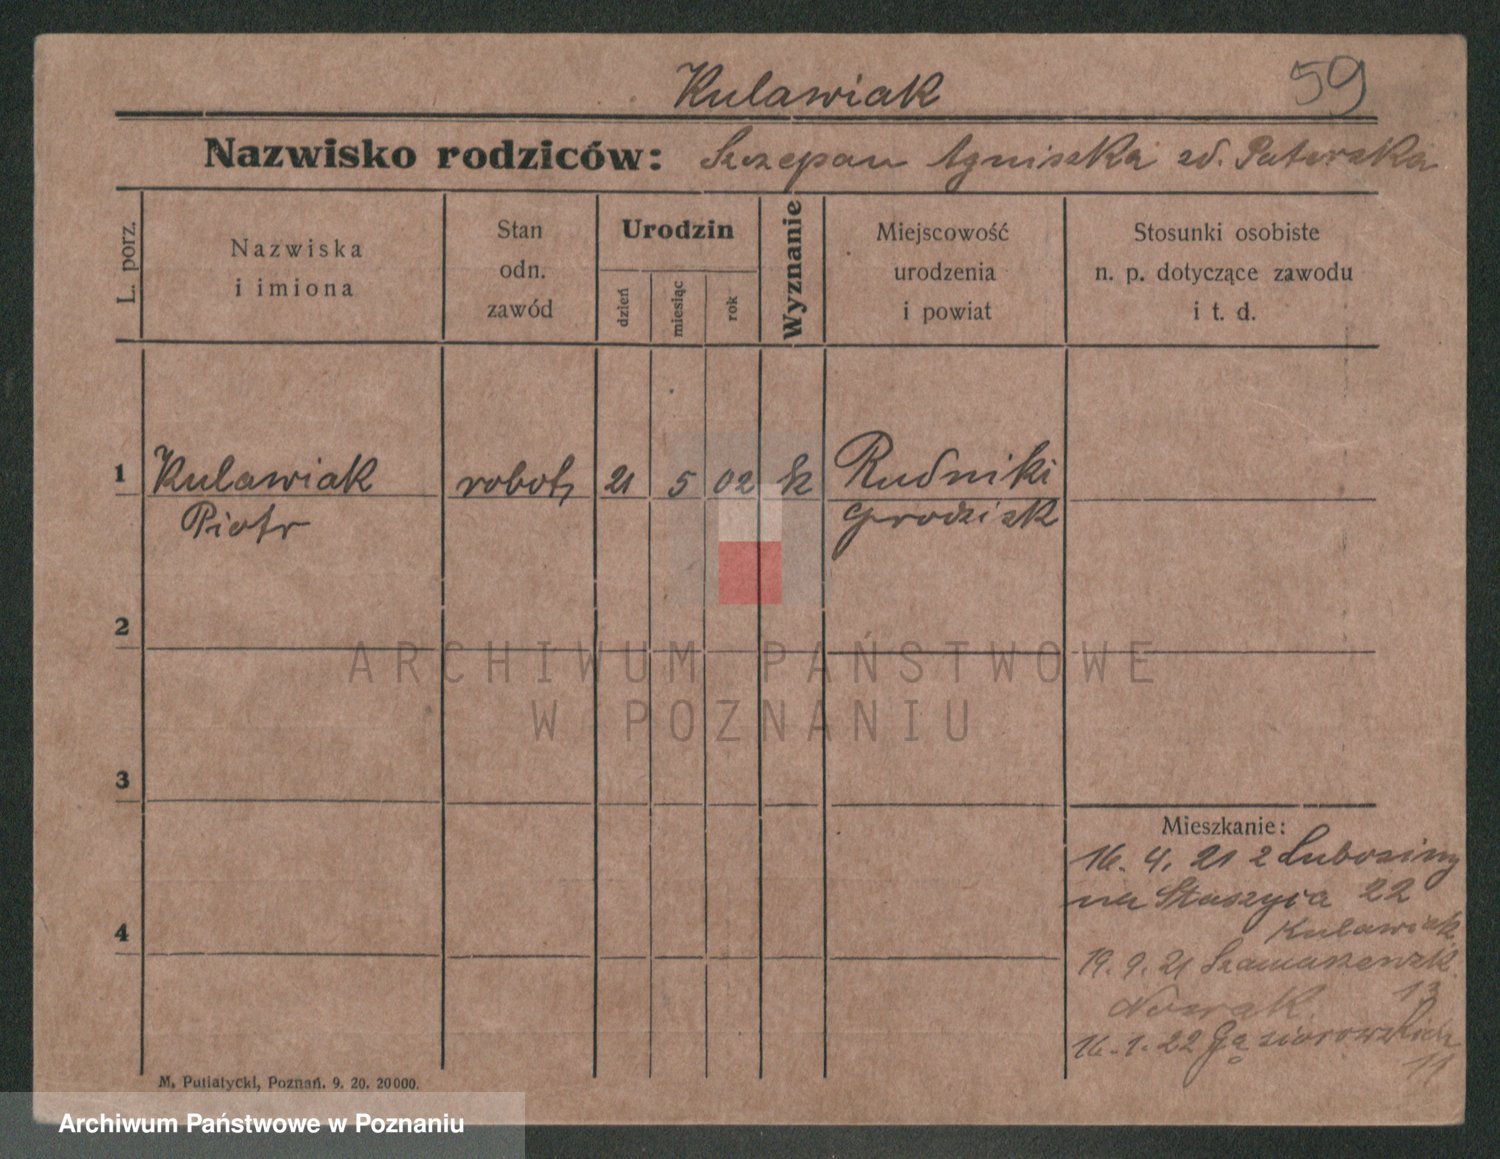 Kulawiak
59
Nazwisko rodziców: Szczepan Agniszka zd. Paterska
L. porz.
Nazwiska i imiona
Stan odn. zawód
Urodzin
dzień
miesiąc
rok
Wyznanie
Miejscowość urodzenia i powiat
Stosunki osobiste n. p. dotyczące zawodu i t. d.
1 Kulawiak robot, 21 5 02 k Rudniki
Piotr Grodzisk
2
3
4
Mieszkanie:
16. 4. 21 z Lubosiny
na Staszyca 22
Kulawiak
19. 9. 21 Szamarzewsk.
13
Nowak
16. 1. 22 Gąsiorowskich
11
M. Putiatycki, Poznań. 9. 20. 20000.
ARCHIWUM PAŃSTWOWE
W POZNANIU
Archiwum Państwowe w Poznaniu